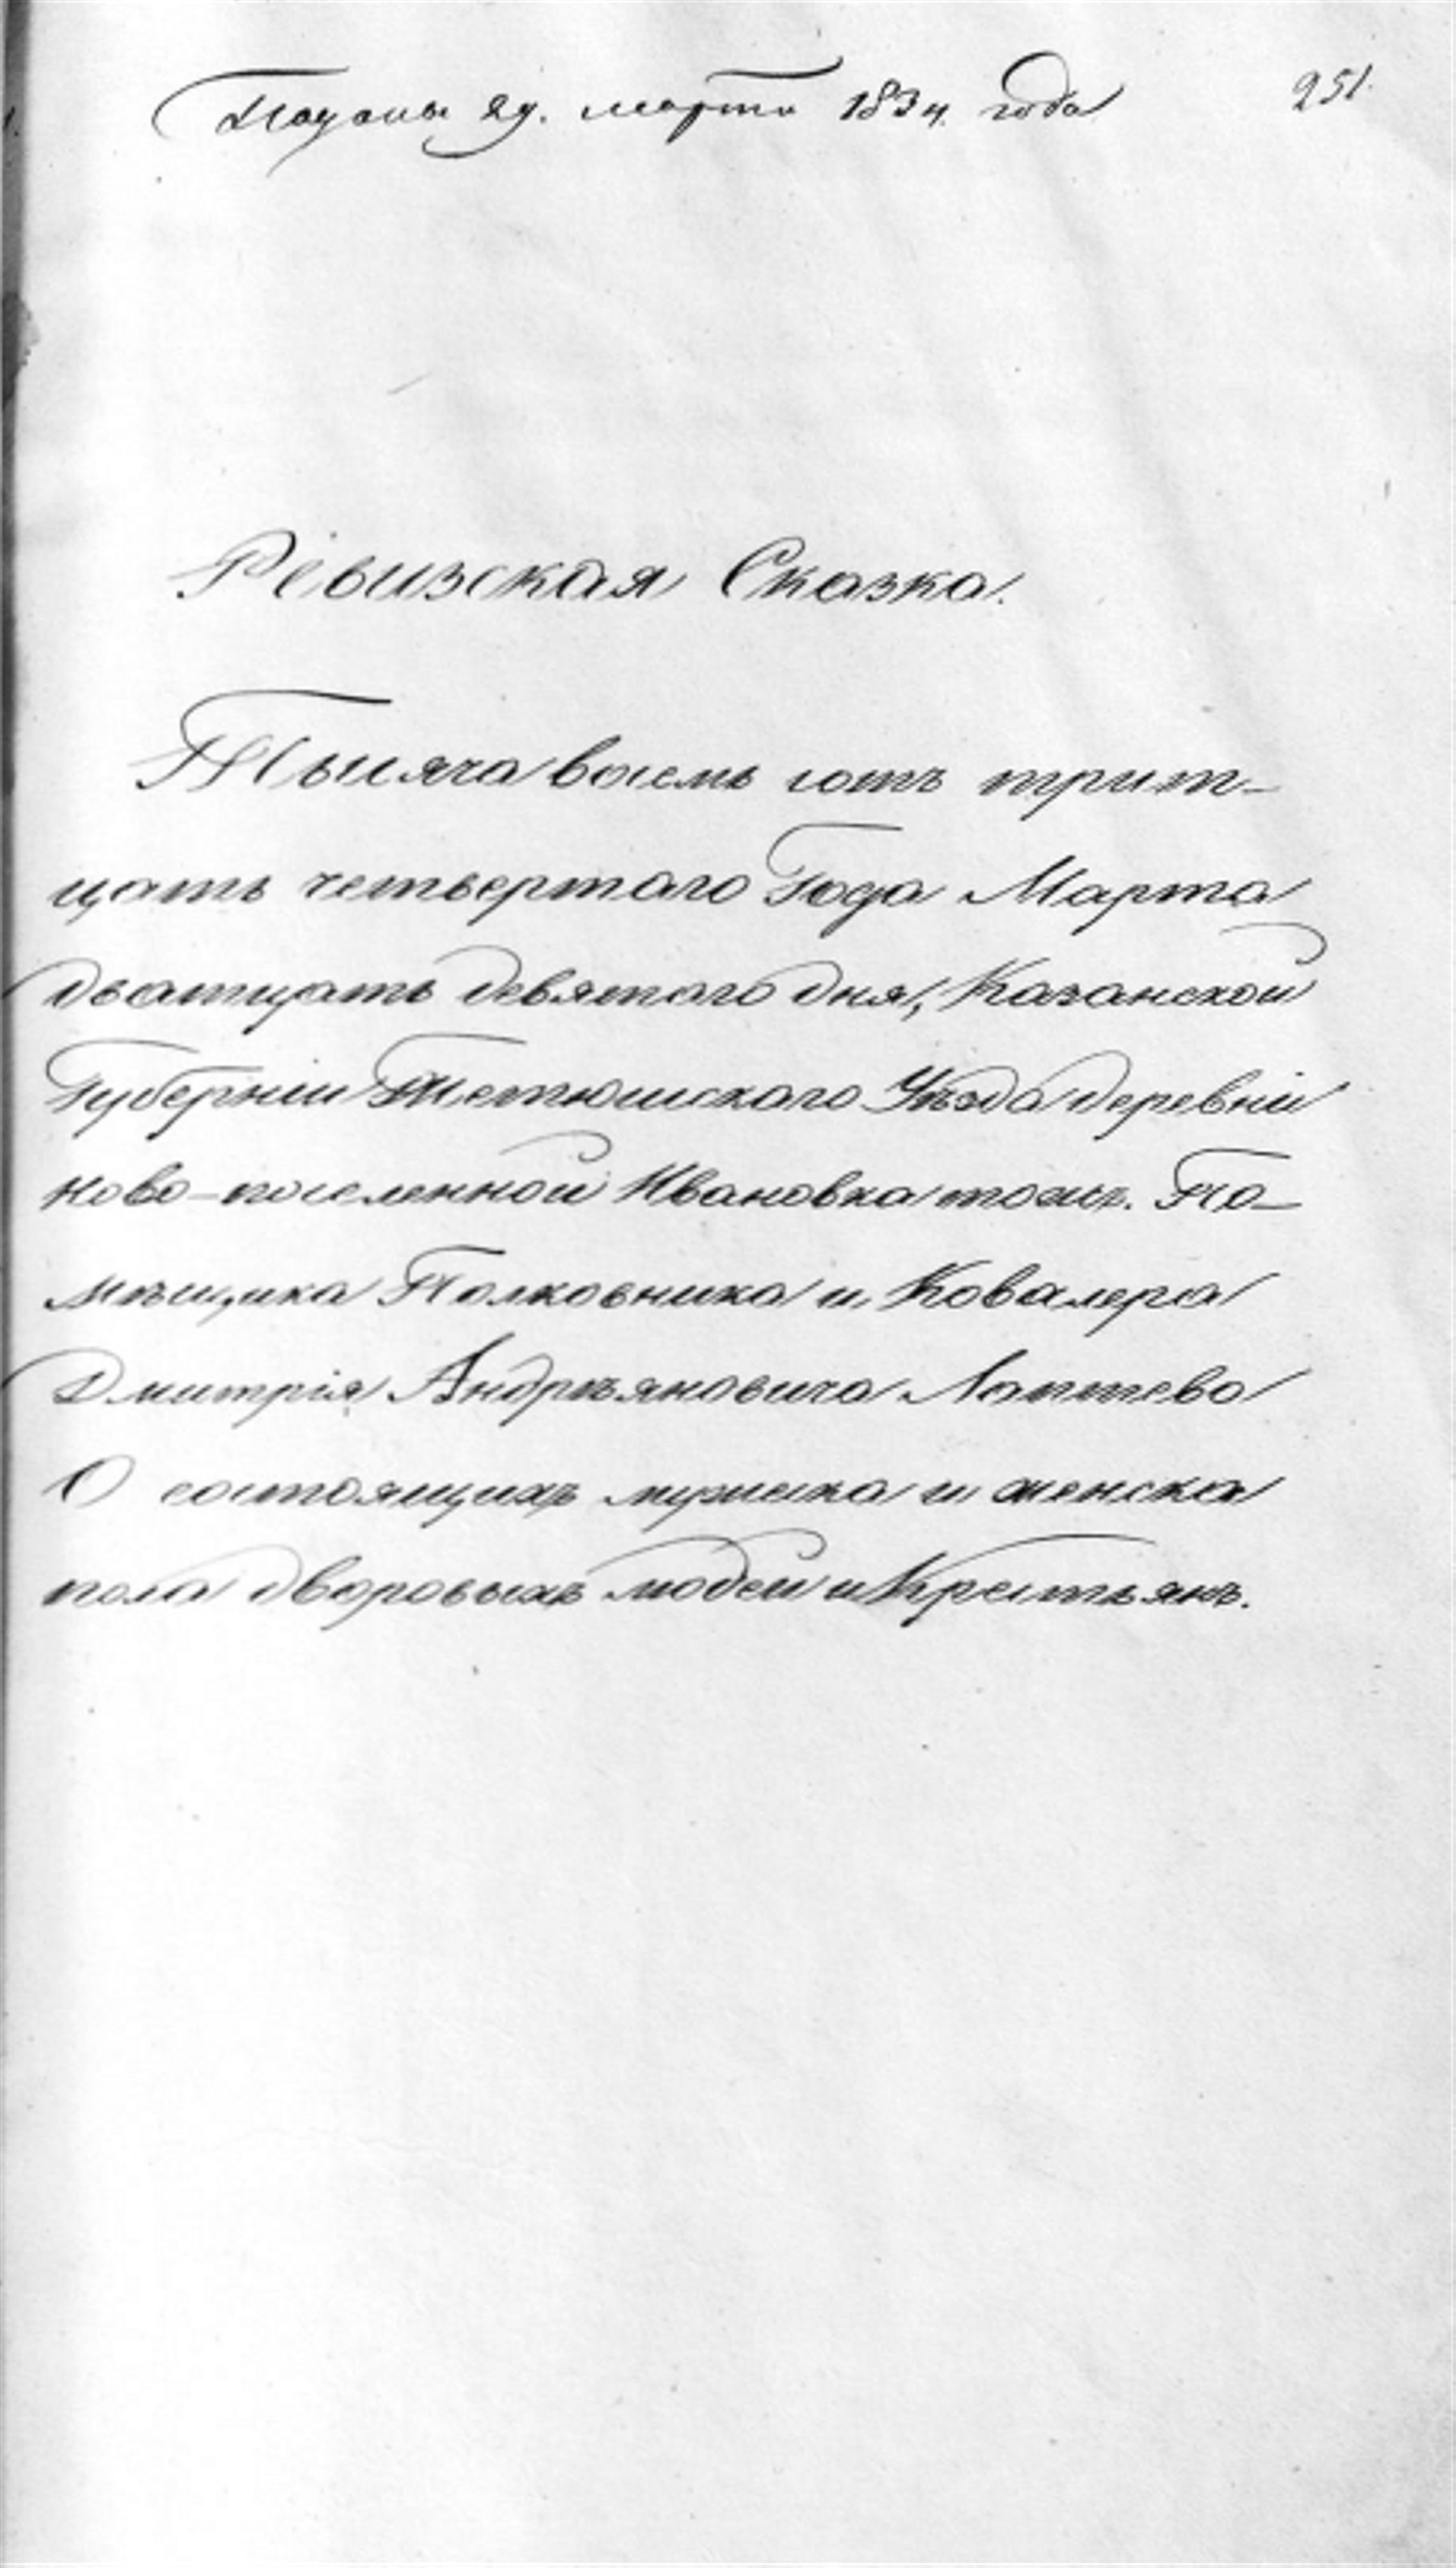 Поданы 29. марта 1834. года
251.
Ревизская Сказка.
Тысяча восемь сотъ трит-
цать четвертаго Года Марта
дватцать девятаго дня, Казанской
Губерніи Тетюшскаго Уѣзда деревни
ново-поселенной Ивановка тожъ. По-
мѣщика Полковника и Ковалера
Дмитрія Андрѣяновича Лаптева
О состоящихъ мужска и женска
пола дворовыхъ людей и Крестьянъ.